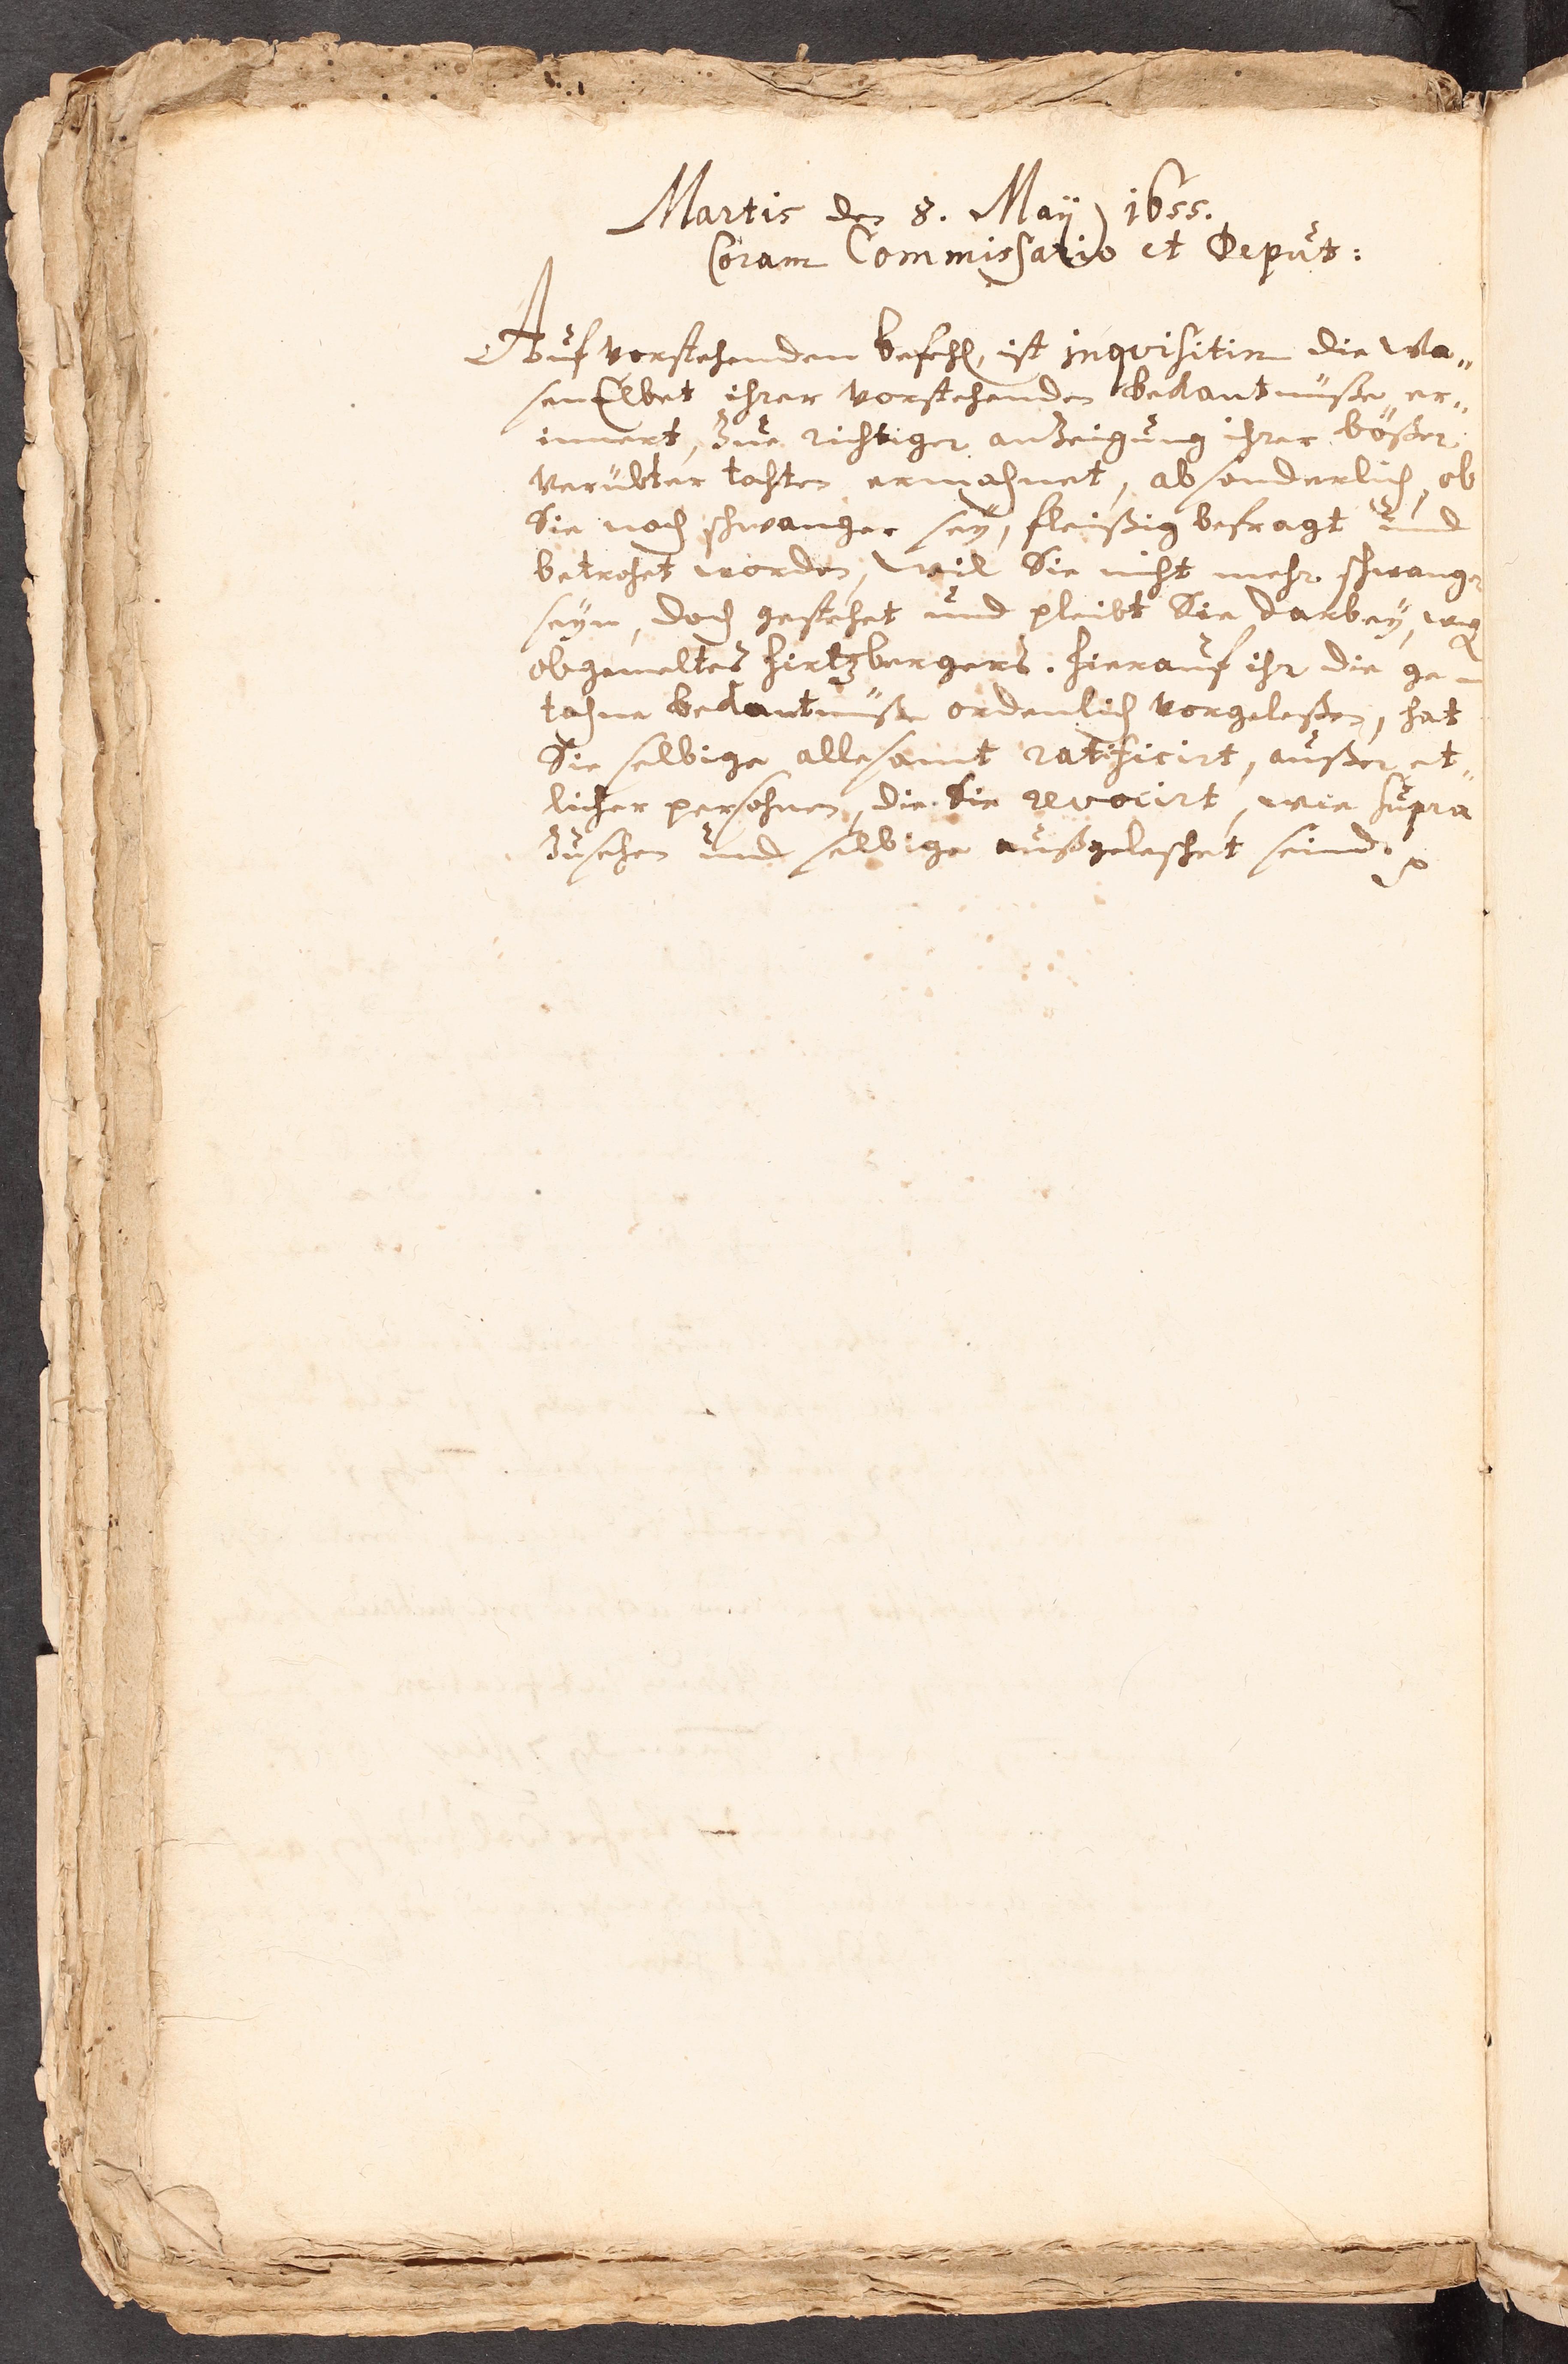 Martis den 8. Maÿ 1655.
Coram Commissario et Deput:
Auf vorstehenden befehl, ist inquisitin die Wa„
senElbet ihrer vorstehenden bekantnüße er„
innert, zue richtiger anzeigung ihrer bößer
verübter tahten ermahnet, absonderlich, ob
Sie noch schwanger seÿ, fleißig befragt und
betrohet worden, Wil Sie nicht mehr schwanger
seyn, doch gestehet und pleibt Sie darbeÿ, weg
obgemeltes Hirtzbergers. Hierauf ihr die ge„
tahne bekantnüße ordenlich vorgeleßen, hat
Sie selbige allesamt ratificirt, außer et„
licher persohnen, die Sie revocirt, wie supra
zusehen und selbige außgeleschet seind.